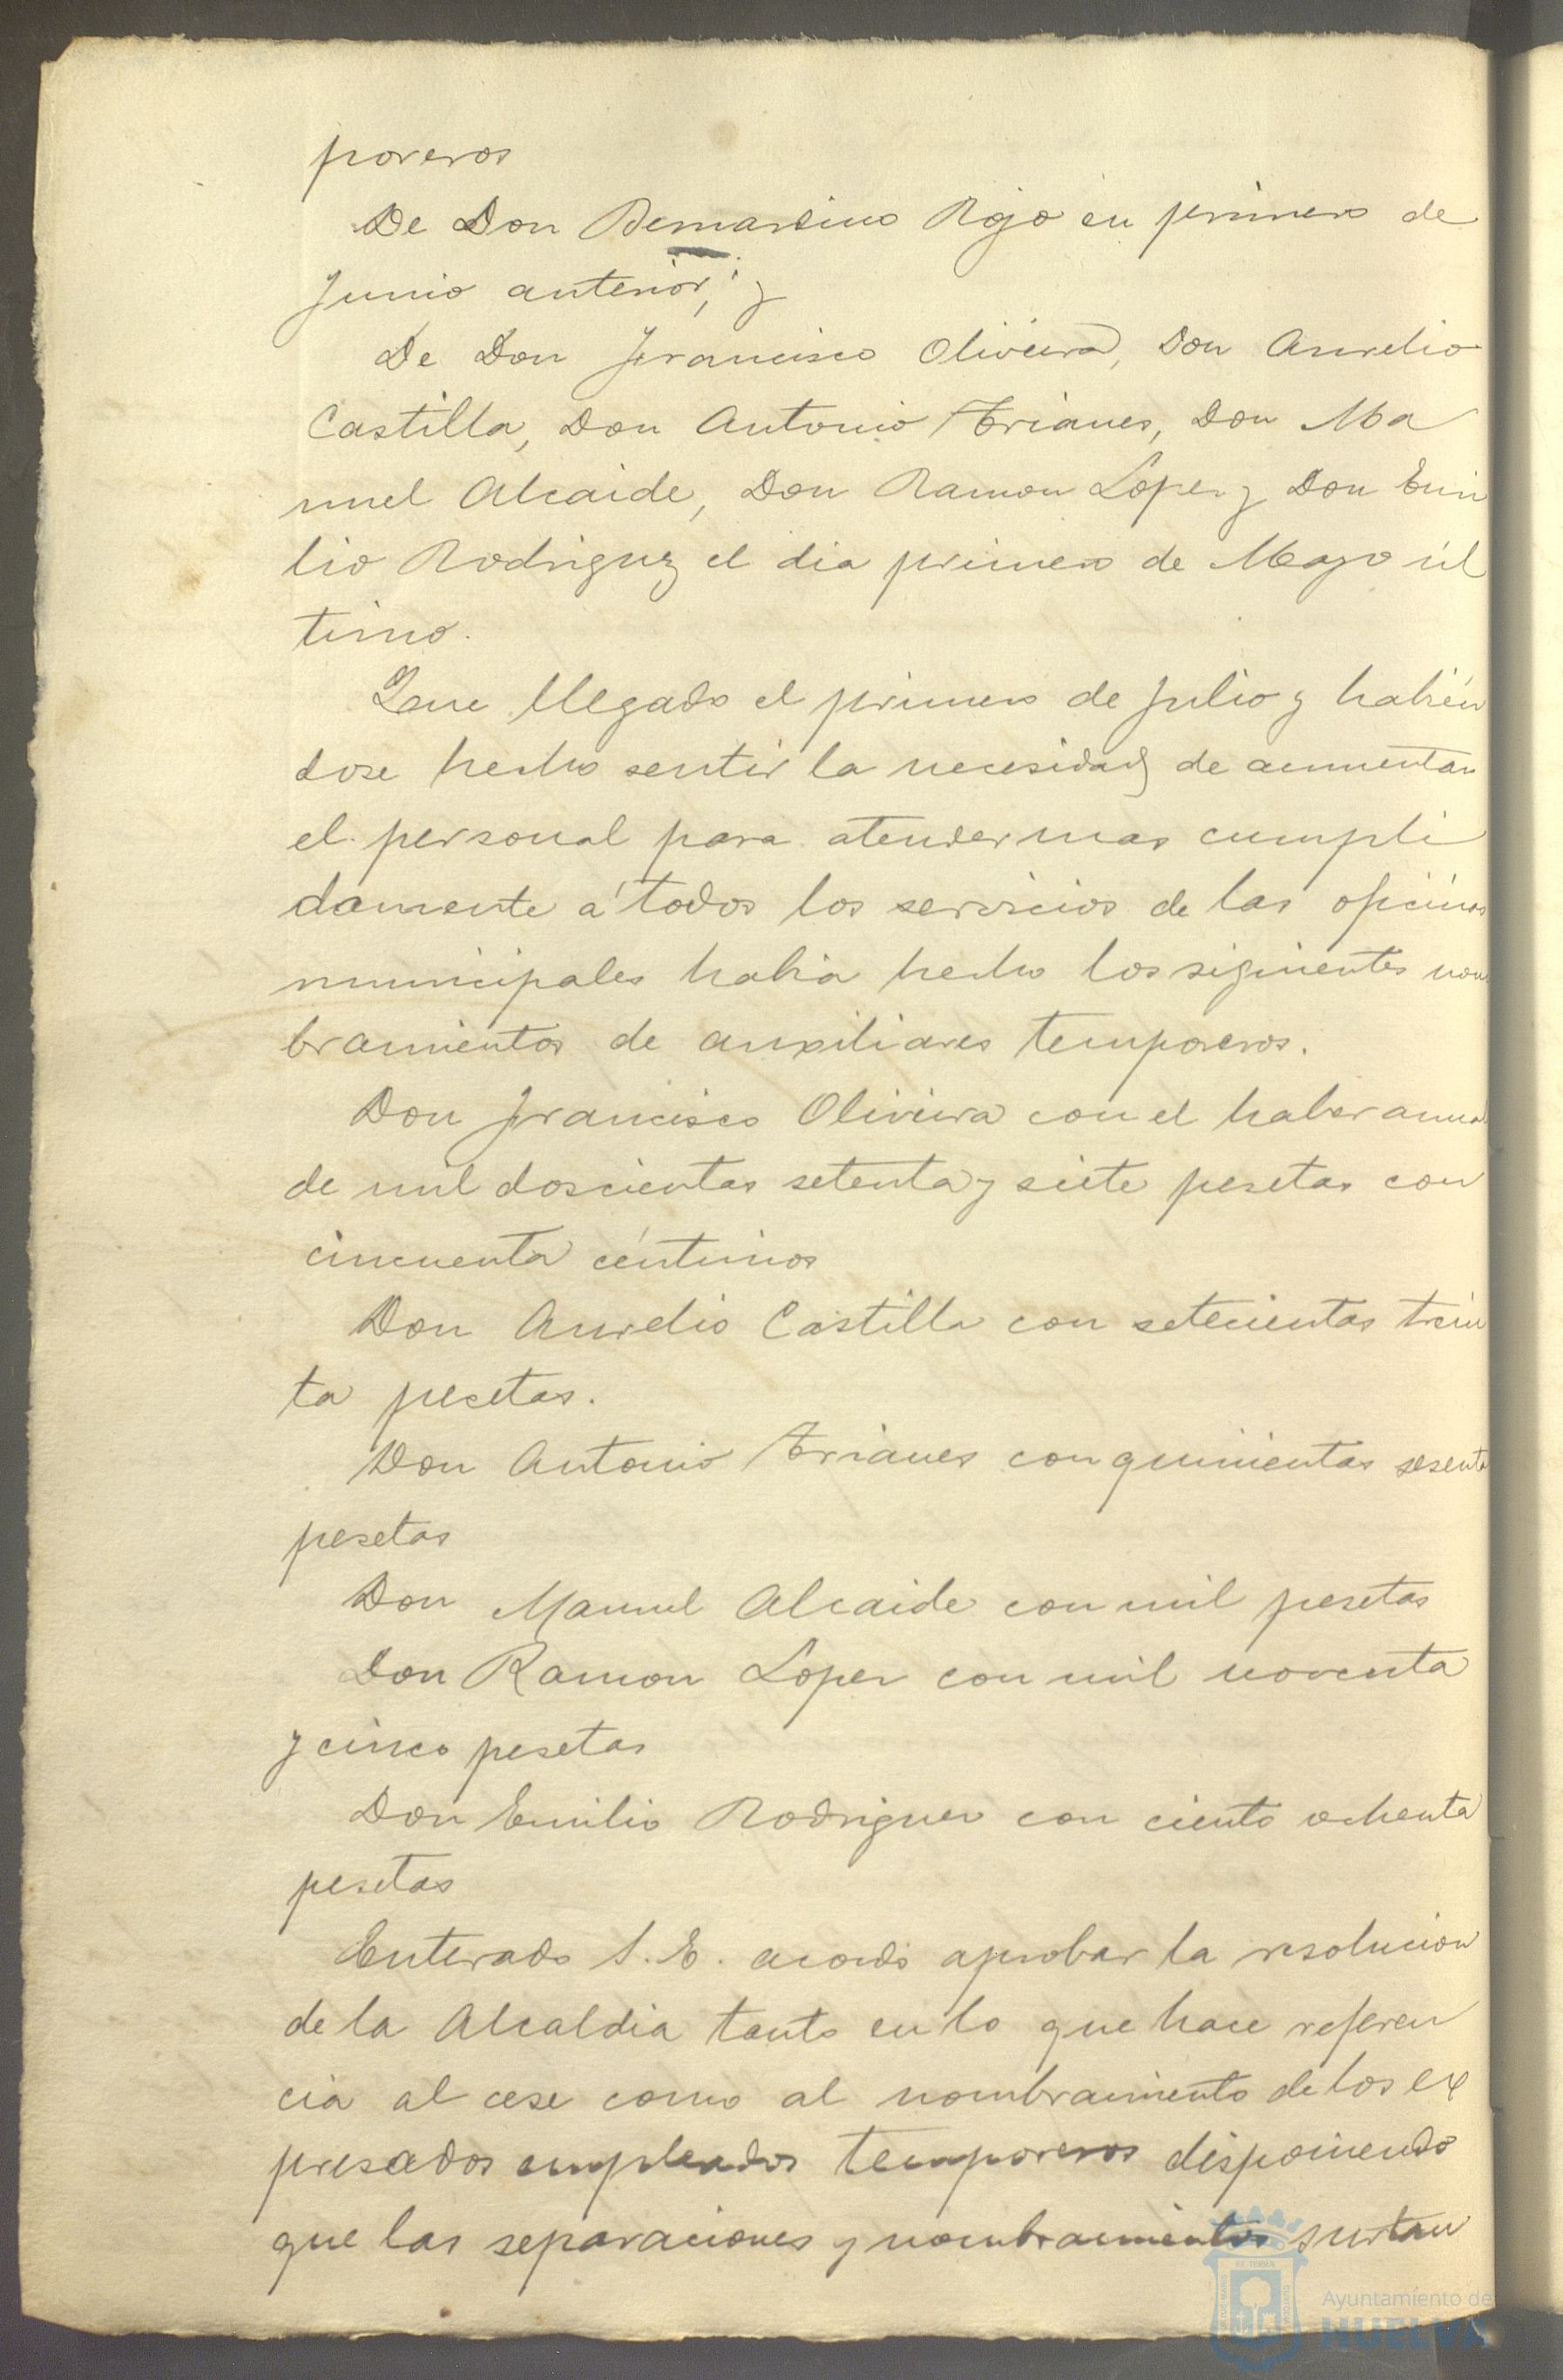 poreros
De Don Bernardino Rojo en primero de
Junio anterior; y
De Don Francisco Oliveira, Don Aurelio
Castilla, Don Antonio Trianes, Don Ma
nuel Alcaide, Don Ramon Lopez y Don Emi
lio Rodriguez el dia primero de Mayo úl
timo.
Que llegado el primero de Julio y habién
dose hecho sentir la necesidad de aumentar
el personal para atender mas cumpli
damente á todos los servicios de las oficinas
municipales habia hecho los siguientes nom
bramientos de auxiliares temporeros.
Don Francisco Oliveira con el haber anual
de mil doscientas setenta y siete pesetas con
cincuenta céntimos
Don Aurelio Castilla con setecientas trein
ta pesetas.
Don Antonio Trianes con quinientas sesenta
pesetas
Don Manuel Alcaide con mil pesetas
Don Ramon Lopez con mil noventa
y cinco pesetas
Don Emilio Rodriguez con ciento ochenta
pesetas
Enterado S. E. acordó aprobar la resolucion
de la Alcaldia tanto en lo que hace referen
cia al cese como al nombramiento de los ex
presados empleados temporeros disponiendo
que las separaciones y nombramientos surtan
Ayuntamiento de
HUELVA